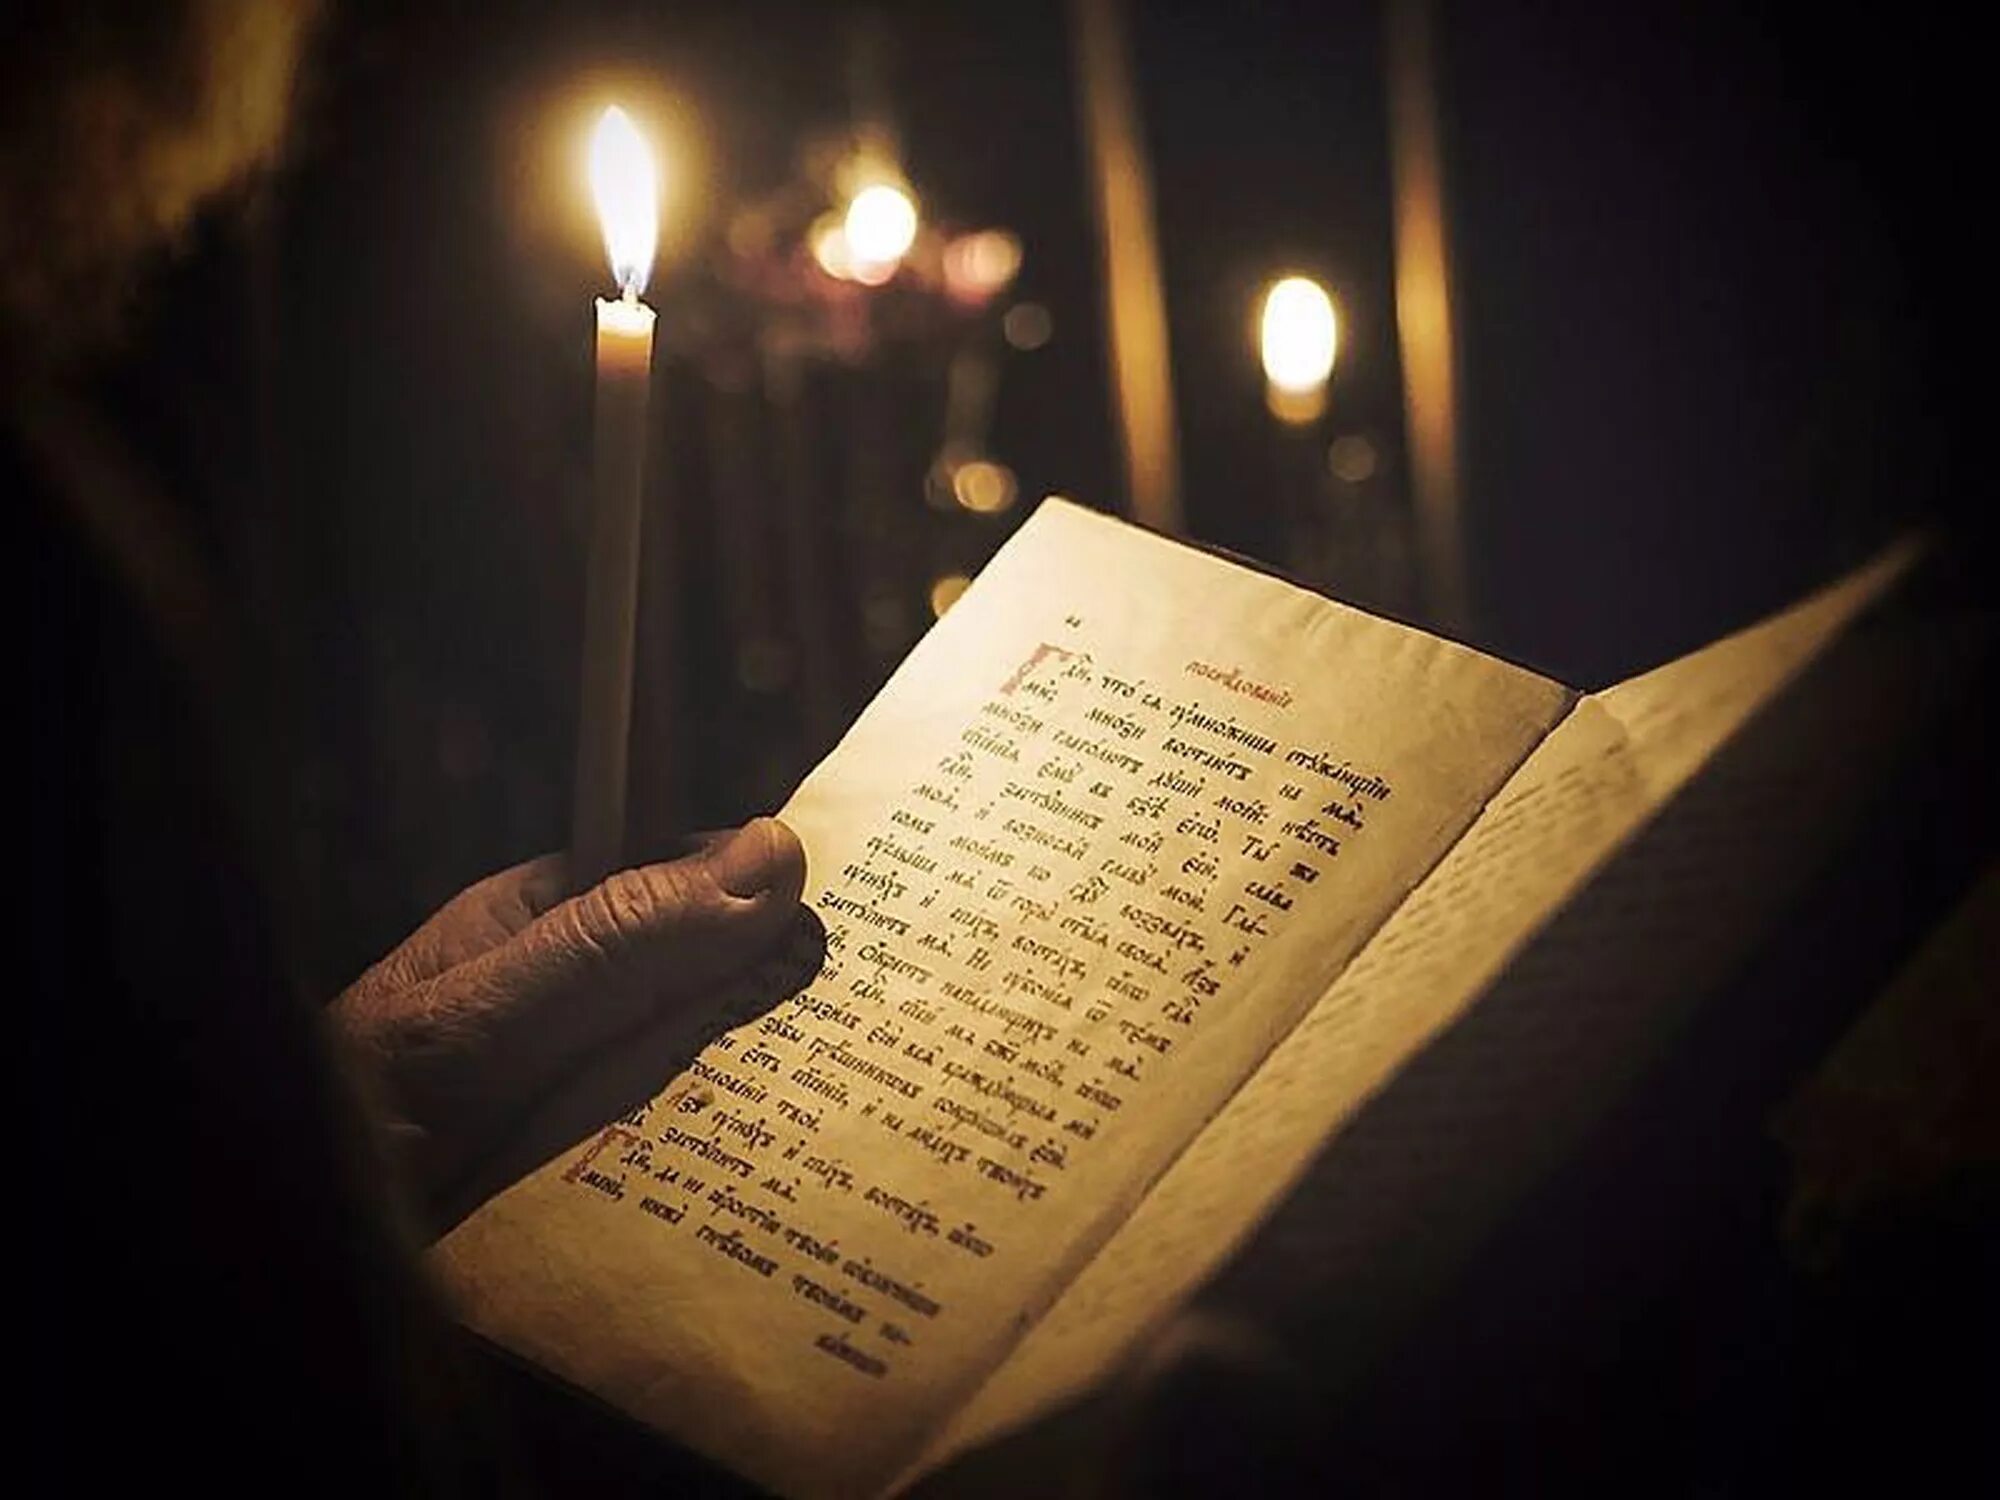 Послѣ́дованїе
Гдⷭ҇и, что́ сѧ ᲂу҆мно́жиша стꙋжа́ющїи
мѝ; мно́зи востаю́тъ на мѧ̀,
мно́зи глаго́лютъ дꙋшѝ мое́й: нѣ́сть
сп҃се́нїѧ є҆мꙋ̀ въ бз҃ѣ є҆гѡ̀. Ты́ же
гдⷭ҇и, застꙋ́пникъ мо́й є҆сѝ, сла́ва
моѧ̀, и҆ возносѧ́й главꙋ̀ мою̀. Гла́-
сомъ мои́мъ ко гдⷭ҇ꙋ воззва́хъ, и҆
ᲂу҆слы́ша мѧ̀ ѿ горы̀ ст҃ы́ѧ своеѧ̀. А҆́зъ
ᲂу҆снꙋ́хъ и҆ спа́хъ, воста́хъ, ꙗ҆́кѡ гдⷭ҇ь
застꙋ́питъ мѧ̀. Не ᲂу҆бою́сѧ ѿ те́мъ
ѡ҆́крестъ напа́дающихъ на мѧ̀.
гдⷭ҇и, сп҃сѝ мѧ̀ бж҃е мо́й, ꙗ҆́кѡ
порази́лъ є҆сѝ всѧ̑ враждꙋ́ющыѧ мѝ
зꙋ́бы грѣ́шникѡвъ сокрꙋши́лъ є҆сѝ.
є҆́сть сп҃се́нїе, и҆ на лю́дехъ твои́хъ
твоѐ.
А҆́зъ ᲂу҆снꙋ́хъ и҆ спа́хъ, воста́хъ, ꙗ҆́кѡ
застꙋ́питъ мѧ̀.
Гдⷭ҇и, да не ꙗ҆́ростїю твое́ю ѡ҆бличи́ши
менѐ, нижѐ гнѣ́вомъ твои́мъ на-
ка́жеши